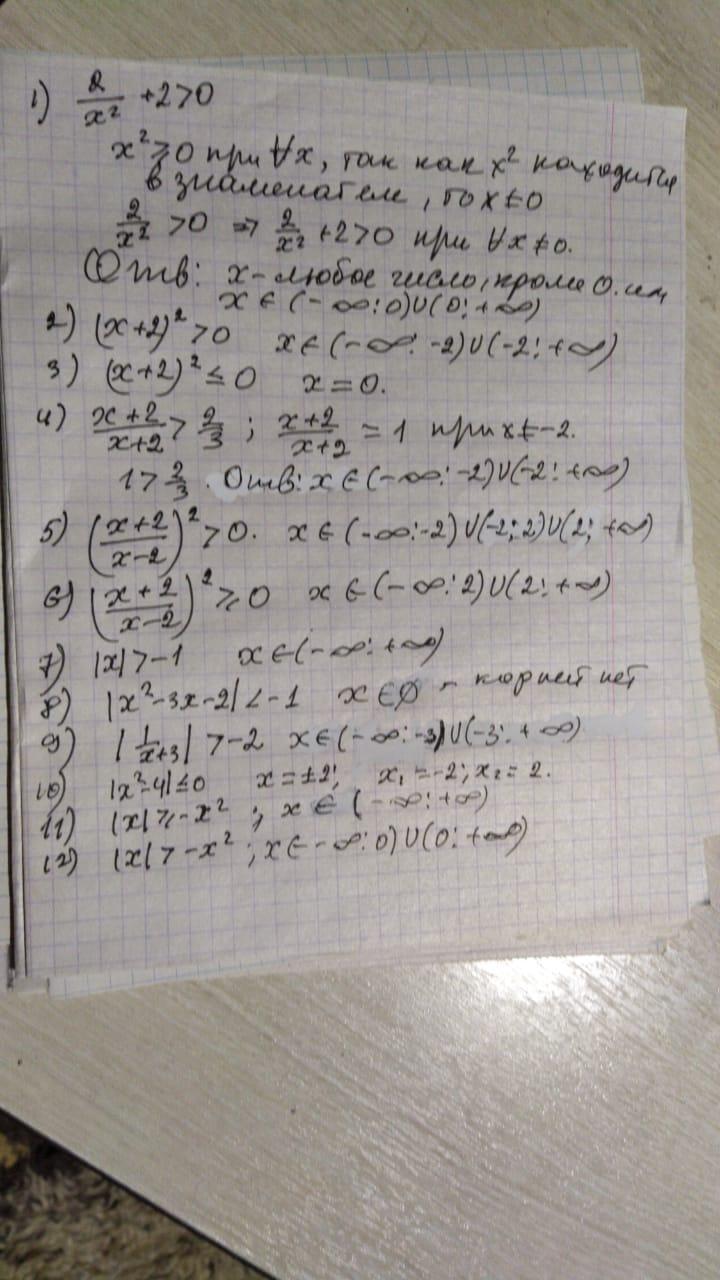 1) 2/x² +2>0
x²⩾0 при ∀x, так как x² находится
в знаменателе, то x≠0
2/x² >0 ⇒ 2/x² +2>0 при ∀x≠0.
Отв: x-любое число, кроме 0. или
x∈(-∞;0)∪(0;+∞)
2) (x+2)²>0 x∈(-∞;-2)∪(-2;+∞)
3) (x+2)²≤0 x=0.
4) (x+2)/(x+2) > 2/3 ; (x+2)/(x+2) = 1 при x≠-2.
1>2/3. Отв: x∈(-∞;-2)∪(-2;+∞)
5) ((x+2)/(x-2))²>0. x∈(-∞;-2)∪(-2;2)∪(2;+∞)
6) ((x+2)/(x-2))²⩾0 x∈(-∞;2)∪(2;+∞)
7) |x|>-1 x∈(-∞;+∞)
8) |x²-3x-2|<-1 x∈∅ - корней нет
9) |1/(x+3)|>-2 x∈(-∞;-3)∪(-3;+∞)
10) |x²-4|≤0 x=±2; x₁=-2; x₂=2.
11) |x|⩾-x² ; x∈(-∞;+∞)
12) |x|>-x² ; x∈-∞;0)∪(0;+∞)